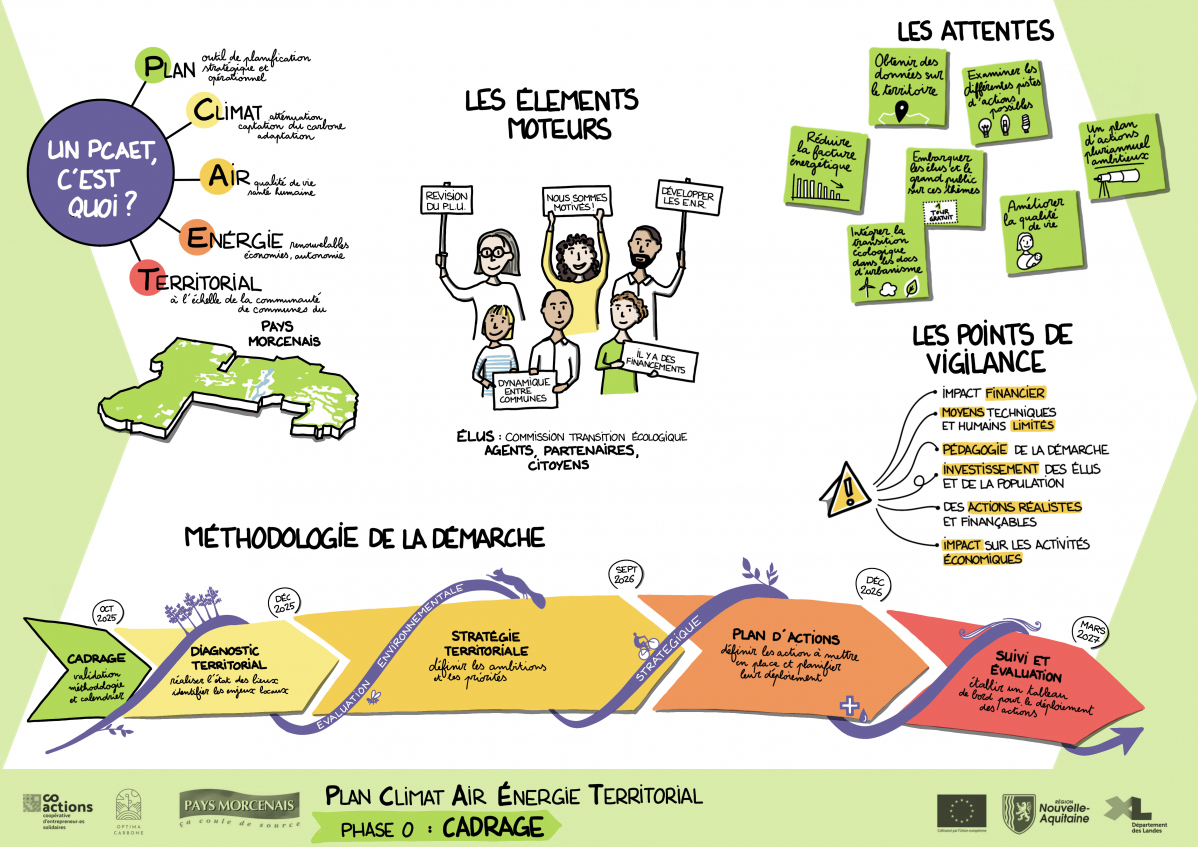 UN PCAET,
C'EST
QUOI ?
PLAN outil de planification
stratégique et
opérationnel
CLIMAT atténuation
captation du carbone
adaptation
AIR qualité de vie
santé humaine
ÉNERGIE renouvelables
économies, autonomie
TERRITORIAL
à l'échelle de la communauté
de communes du
PAYS
MORCENAIS
LES ÉLEMENTS
MOTEURS
REVISION
DU P.L.U.
NOUS SOMMES
MOTIVÉS !
DÉVELOPPER
LES E.N.R.
IL Y A DES
FINANCEMENTS
DYNAMIQUE
ENTRE
COMMUNES
ÉLUS : COMMISSION TRANSITION ÉCOLOGIQUE
AGENTS, PARTENAIRES,
CITOYENS
LES ATTENTES
Obtenir des
données sur
le territoire
Examiner les
différentes pistes
d'actions
possibles
Un plan
d'actions
pluriannuel
ambitieux
Réduire
la facture
énergétique
Embarquer
les élus et le
grand public
sur ces thèmes
1
TOUR
GRATUIT
Améliorer
la qualité
de vie
Intégrer la
transition
écologique
dans les docs
d'urbanisme
LES POINTS DE
VIGILANCE
IMPACT FINANCIER
MOYENS TECHNIQUES
ET HUMAINS LIMITÉS
PÉDAGOGIE DE LA DÉMARCHE
INVESTISSEMENT DES ÉLUS
ET DE LA POPULATION
DES ACTIONS RÉALISTES
ET FINANÇABLES
IMPACT SUR LES ACTIVITÉS
ÉCONOMIQUES
!
MÉTHODOLOGIE DE LA DÉMARCHE
OCT
2025
DÉC
2025
SEPT
2026
DÉC
2026
MARS
2027
CADRAGE
validation
méthodologie
et calendrier
DIAGNOSTIC
TERRITORIAL
réaliser l'état des lieux
identifier les enjeux locaux
ÉVALUATION ENVIRONNEMENTALE
STRATÉGIE
TERRITORIALE
définir les ambitions
et les priorités
STRATÉGIQUE
PLAN D'ACTIONS
définir les action à mettre
en place et planifier
leur déploiement
SUIVI ET
ÉVALUATION
établir un tableau
de bord pour le déploiement
des actions
CO
actions
coopérative
d'entrepreneur·es
solidaires
OPTIMA
CARBONE
PAYS MORCENAIS
ça coule de source
PLAN CLIMAT AIR ÉNERGIE TERRITORIAL
PHASE 0 : CADRAGE
Cofinancé par l'Union européenne
RÉGION
Nouvelle-
Aquitaine
XL
Département
des Landes